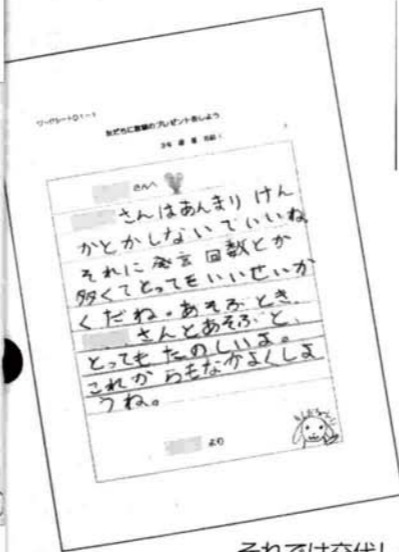 ワークシート01-1
友だちに言葉のプレゼントをしよう
3年 組 名前
さんへ
さんはあんまり けん
かとかしないでいいね
それに 発言 回数とか
多くてとってもいいせいか
くだね。あそぶとき、
さんとあそぶと、
とっても たのしいよ。
これか らもなかよくしよ
うね。
より
それでは交代し